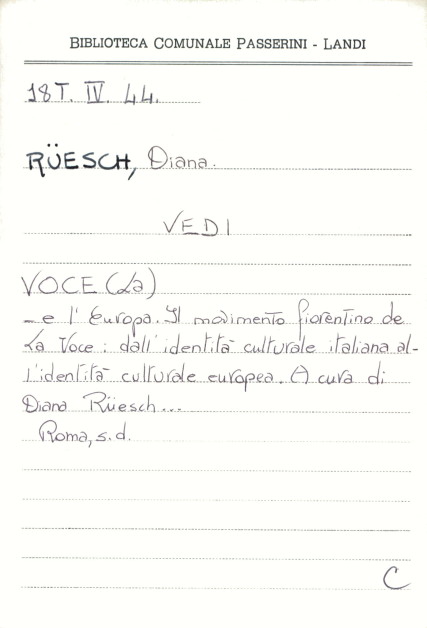 BIBLIOTECA COMUNALE PASSERINI - LANDI
18T. IV. 44.
RÜESCH, Diana.
VEDI
VOCE (La)
– e l' Europa. Il movimento fiorentino de
La Voce : dall'identità culturale italiana al-
l'identità culturale europea. A cura di
Diana Rüesch...
Roma, s.d.
C